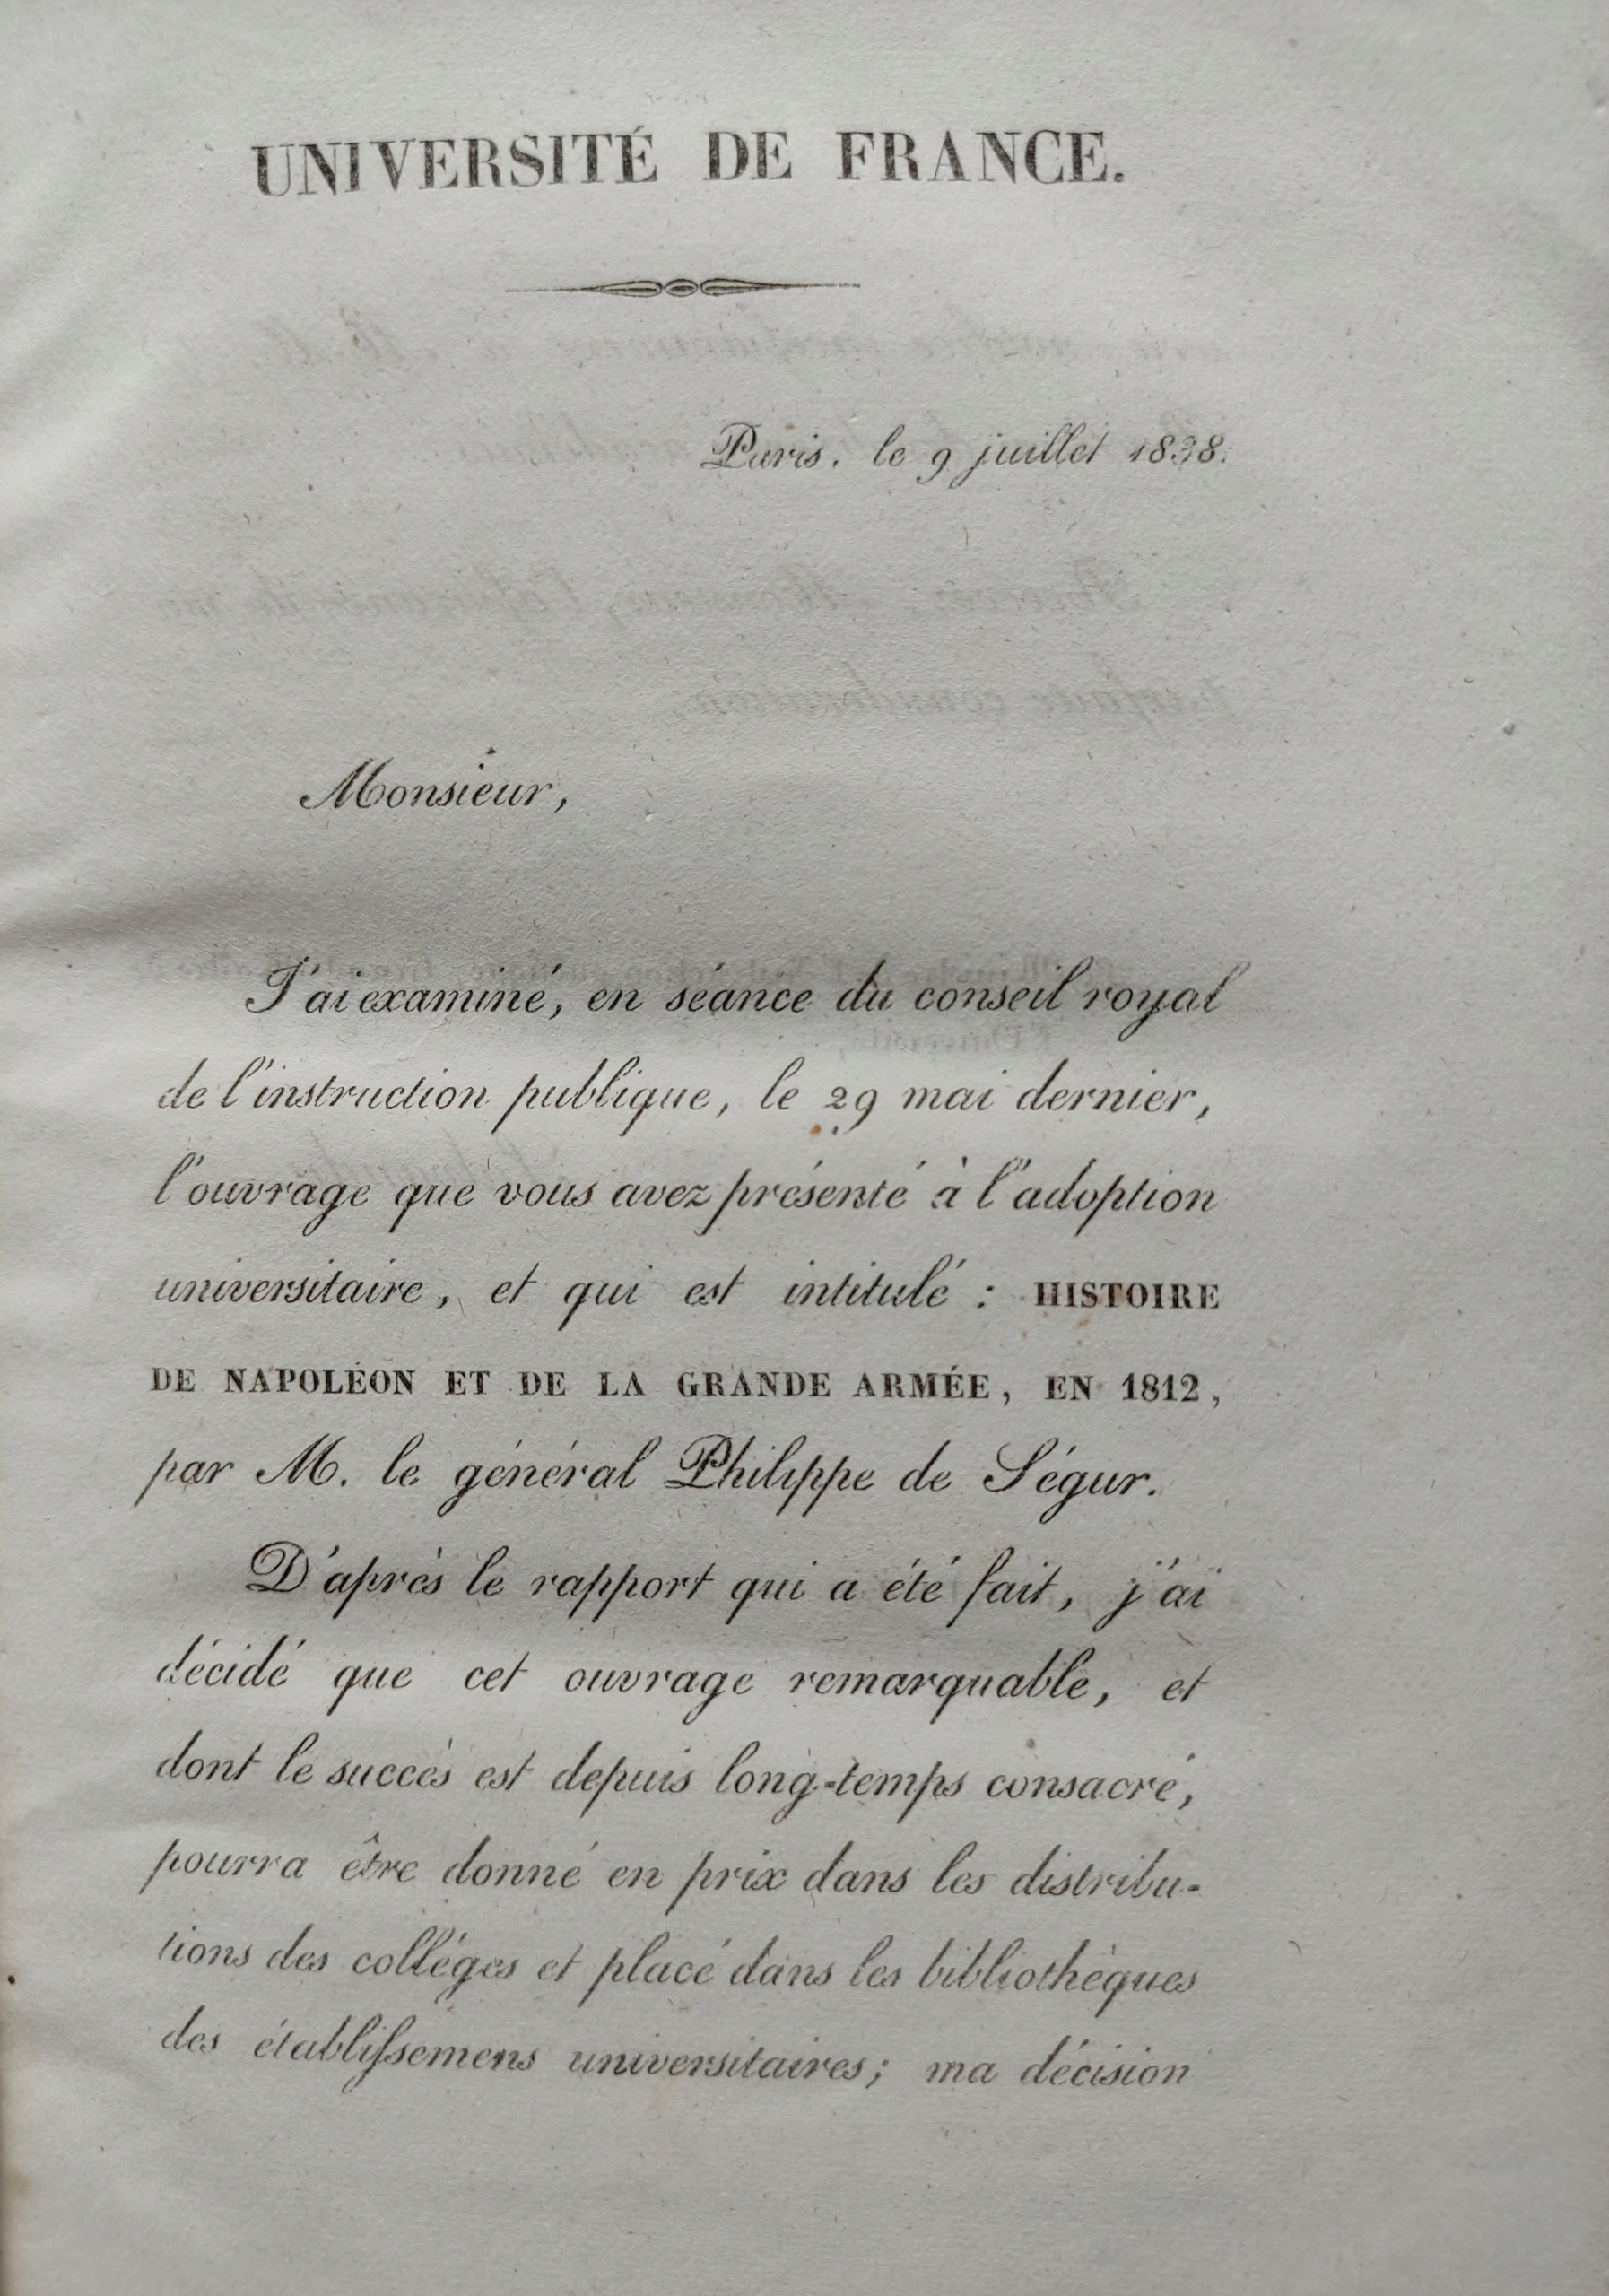 UNIVERSITÉ DE FRANCE.
Paris, le 9 juillet 1838.
Monsieur,
J'ai examiné, en séance du conseil royal
de l'instruction publique, le 29 mai dernier,
l'ouvrage que vous avez présenté à l'adoption
universitaire, et qui est intitulé : HISTOIRE
DE NAPOLÉON ET DE LA GRANDE ARMÉE, EN 1812,
par M. le général Philippe de Ségur.
D'après le rapport qui a été fait, j'ai
décidé que cet ouvrage remarquable, et
dont le succès est depuis long-temps consacré,
pourra être donné en prix dans les distribu-
tions des colléges et placé dans les bibliothèques
des établiſsemens universitaires; ma décision